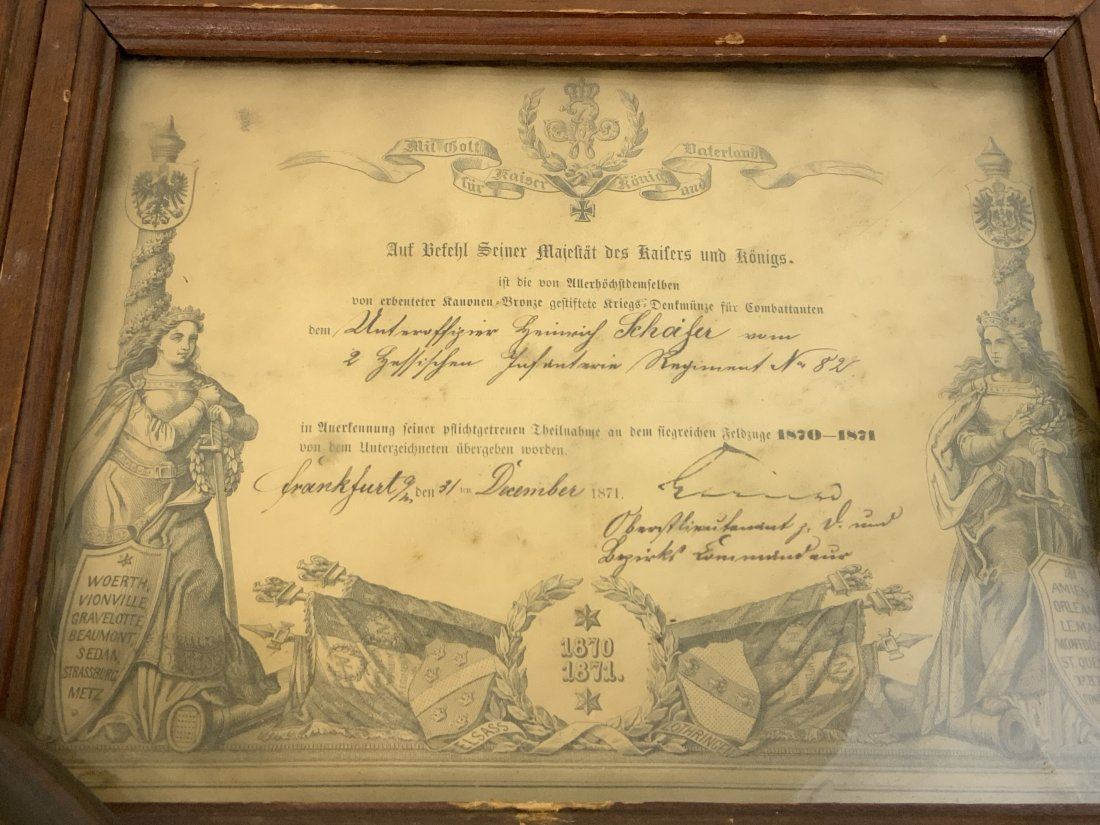 Mit Gott für Kaiser König und Vaterland
Auf Befehl Seiner Majestät des Kaisers und Königs.
ist die von Allerhöchstdemselben
von erbeuteter Kanonen-Bronze gestiftete Kriegs-Denkmünze für Combattanten
dem Unteroffizier Heinrich Schäfer vom
2 Hessischen Infanterie Regiment No 82
in Anerkennung seiner pflichtgetreuen Theilnahme an dem siegreichen Feldzuge 1870—1871
von dem Unterzeichneten übergeben worden.
Frankfurt a/M den 31ten December 1871.
Oberstlieutenant z. D. und
Bezirks Commandeur
WOERTH,
VIONVILLE
GRAVELOTTE,
BEAUMONT,
SEDAN,
STRASSBURG
METZ
1870
1871.
ELSASS
LOTHRINGEN
AMIEN
ORLEAN
LE MAN
ST. QUE